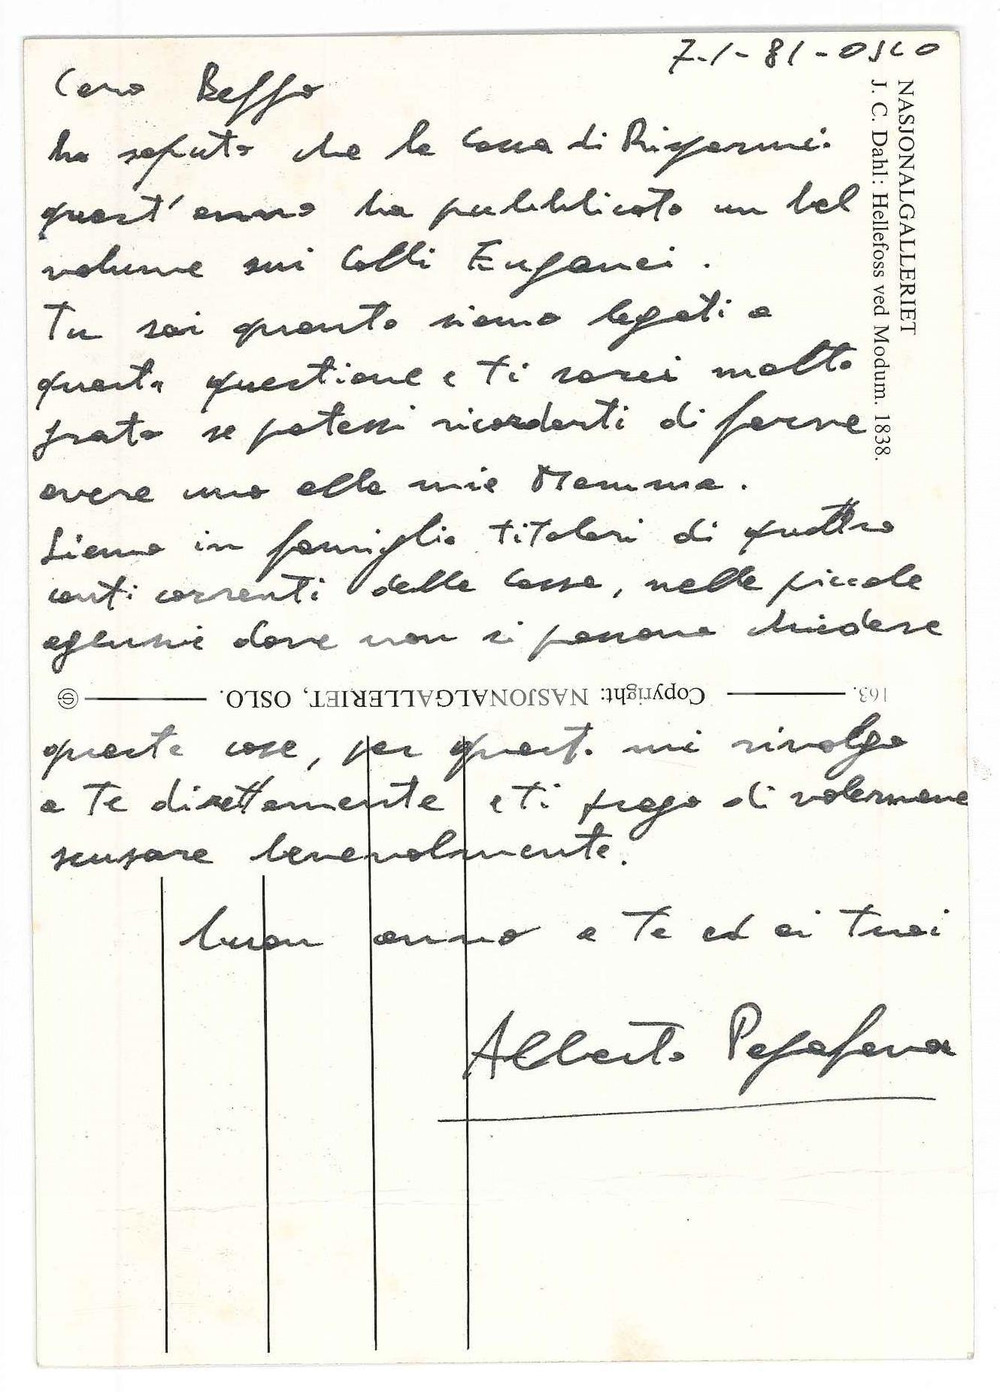 7-1-81-OSLO
Caro Beppo
ho saputo che la Cassa di Risparmio
quest'anno ha pubblicato un bel
volume sui Colli Euganei.
Tu sai quanto siamo legati a
questa questione e ti sarei molto
grato se potessi ricordarti di farne
avere uno alla mia Mamma.
Siamo in famiglia titolari di quattro
conti correnti della Cassa, nelle piccole
agenzie dove non si possono chiedere
queste cose, per questo mi rivolgo
a Te direttamente e ti prego di volermene
scusare benevolmente.
buon anno a Te ed ai tuoi
Alberto
NASJONALGALLERIET
J. C. Dahl: Hellefoss ved Modum. 1838.
163. Copyright: NASJONALGALLERIET, OSLO.